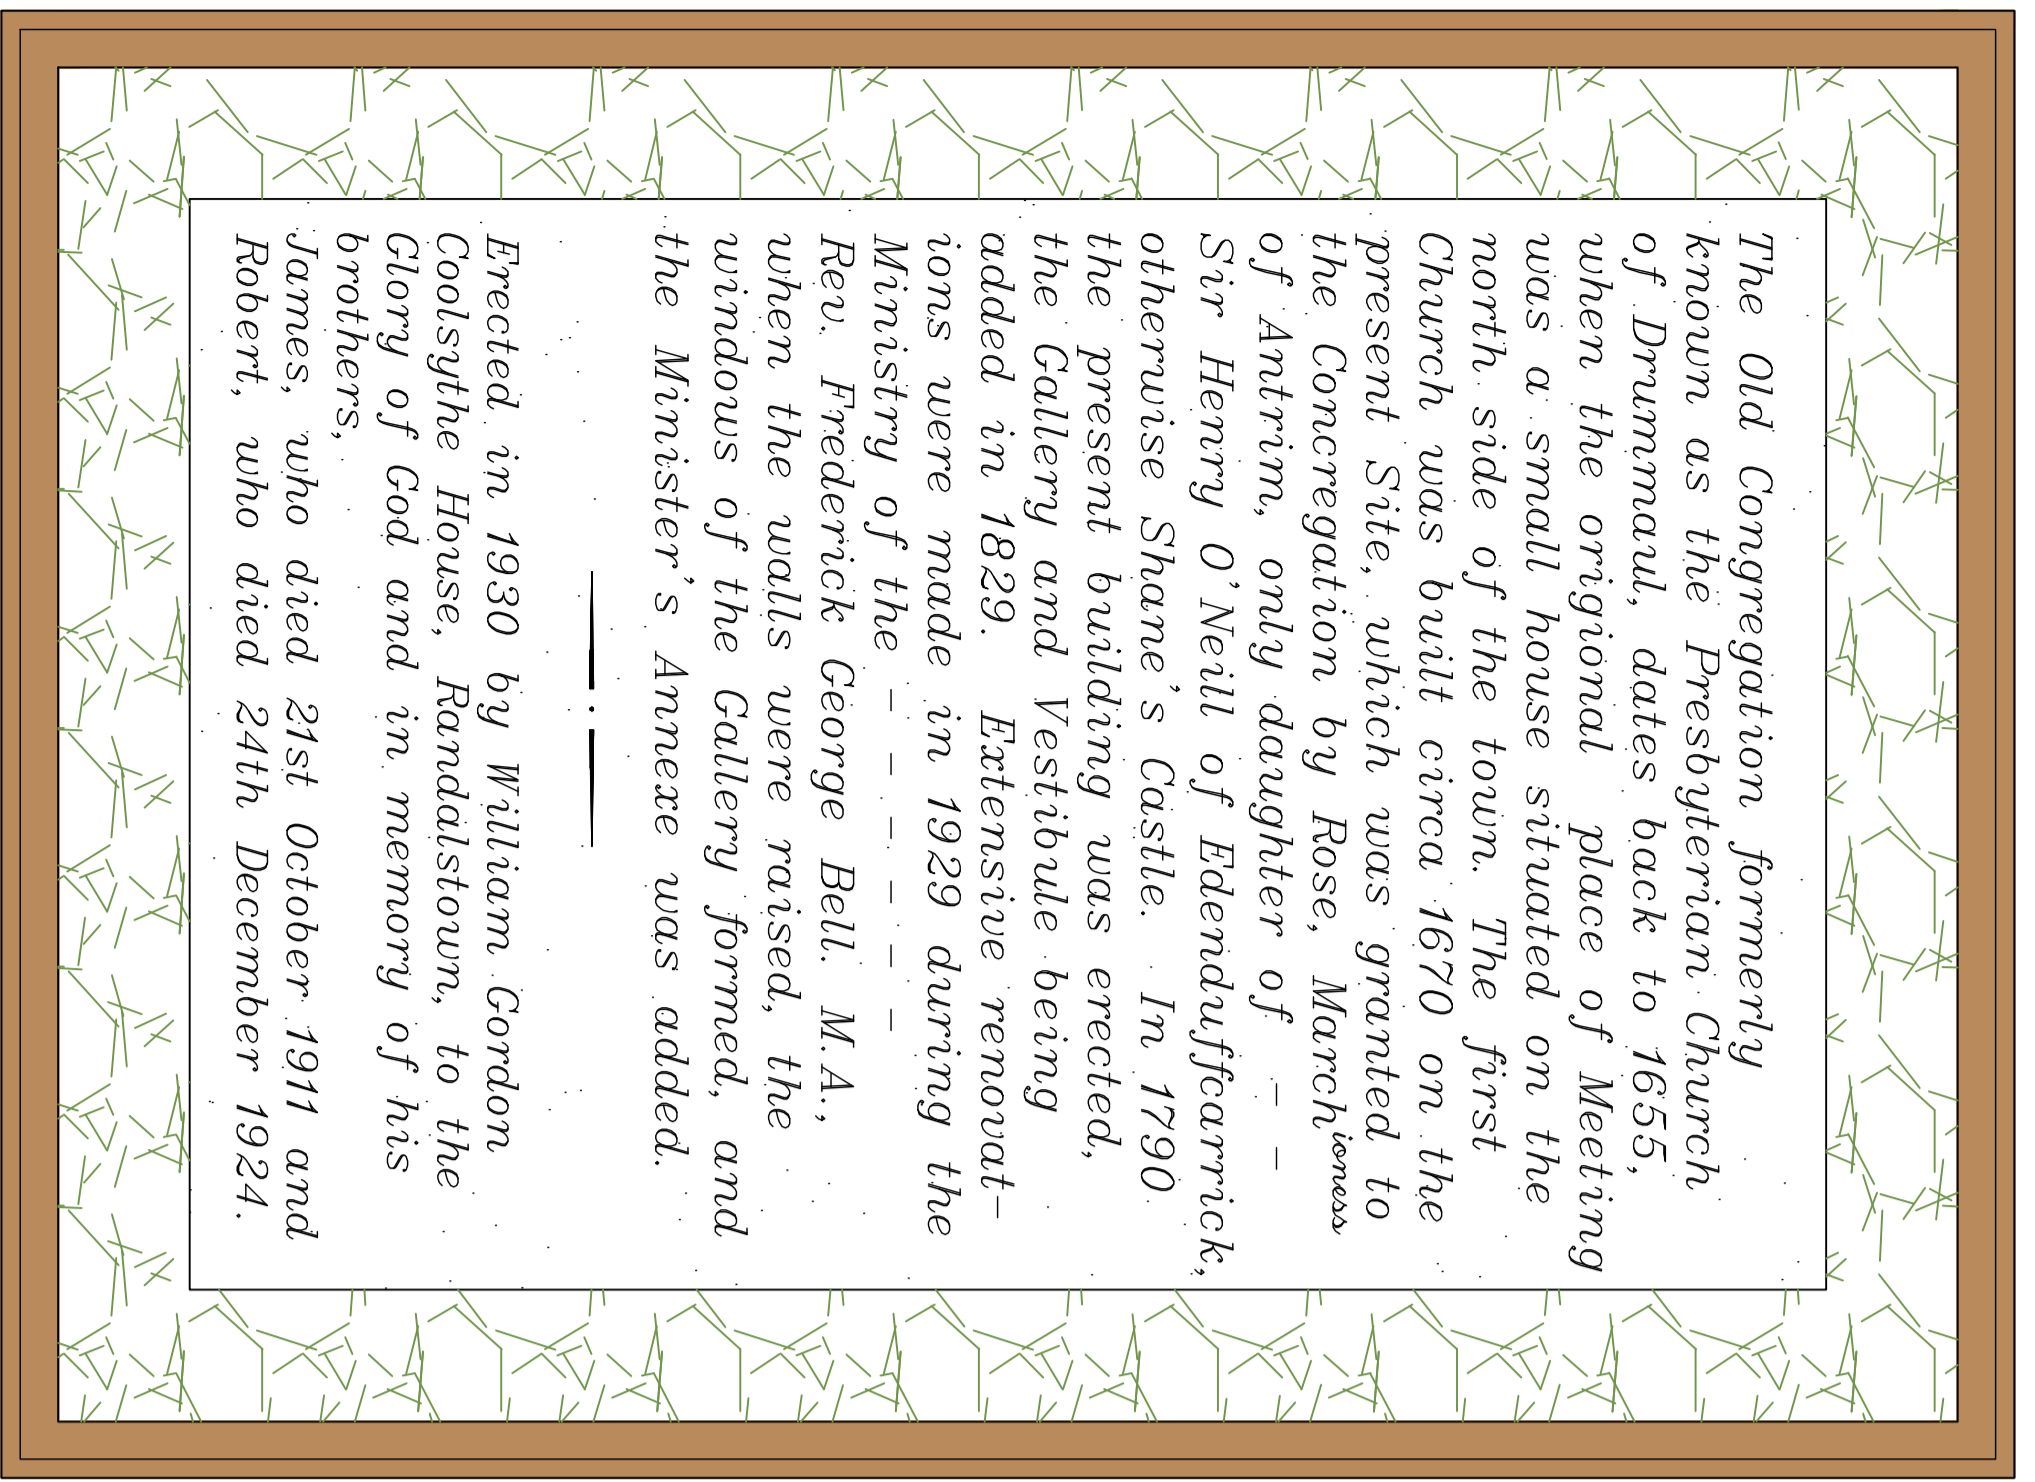 The Old Congregation formerly
known as the Presbyterian Church
of Drummaul, dates back to 1655,
when the origional place of Meeting
was a small house situated on the
north side of the town. The first
Church was built circa 1670 on the
present Site, which was granted to
the Concregation by Rose, Marchioness
of Antrim, only daughter of - -
Sir Henry O'Neill of Edenduffcarrick,
otherwise Shane's Castle. In 1790
the present building was erected,
the Gallery and Vestibule being
added in 1829. Extensive renovat-
ions were made in 1929 during the
Ministry of the - - - - - -
Rev. Frederick George Bell. M.A.,
when the walls were raised, the
windows of the Gallery formed, and
the Minister's Annexe was added.
Erected in 1930 by William Gordon
Coolsythe House, Randalstown, to the
Glory of God and in memory of his
brothers,
James, who died 21st October 1911 and
Robert, who died 24th December 1924.